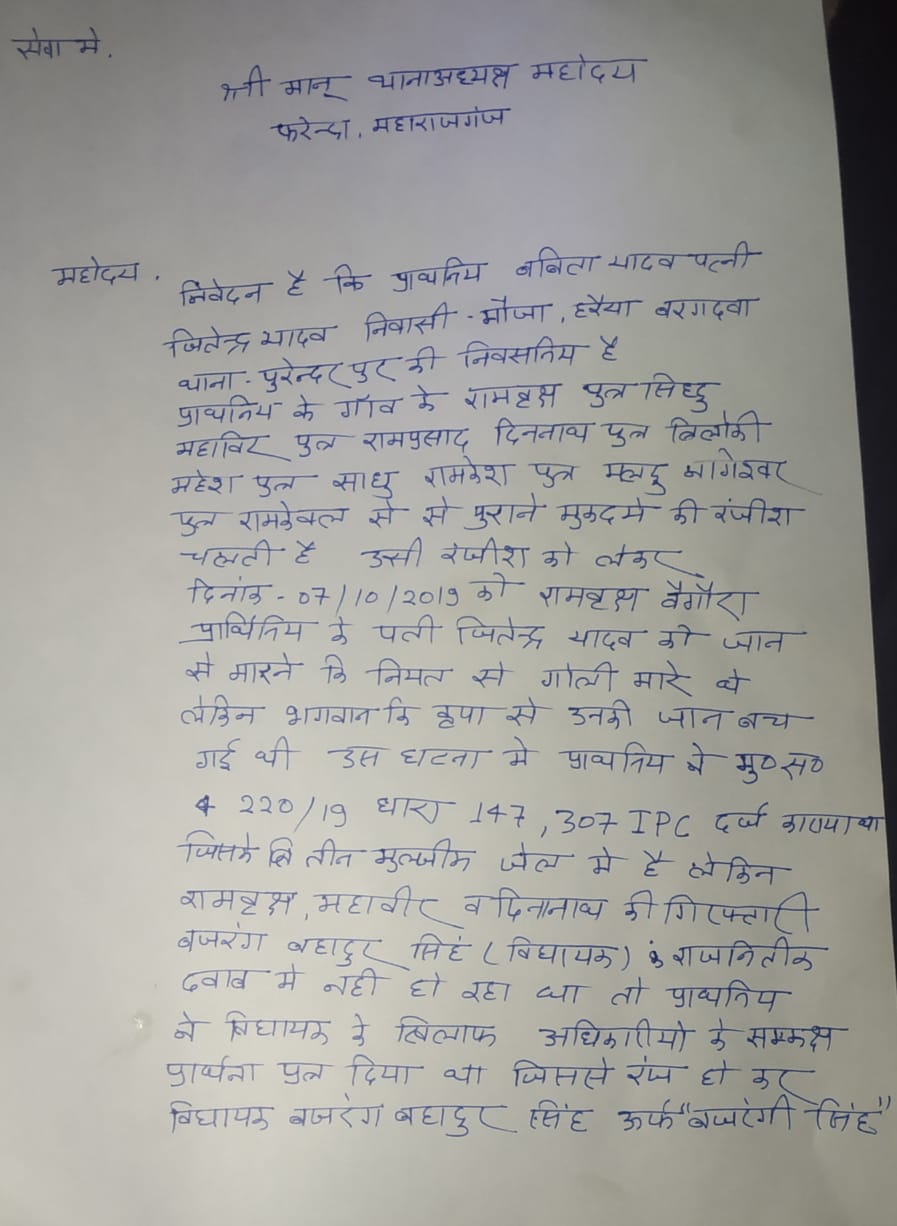 सेवा मे.
श्री मान् थानाअध्यक्ष महोदय
फरेन्दा, महाराजगंज
महोदय.
निवेदन है कि प्राथनिय बबिता यादव पत्नी
जितेन्द्र यादव निवासी - मौजा, हरैया बरगदवा
थाना - पुरेन्दरपुर की निवसनिय है
प्राथनिय के गाँव के रामवृक्ष पुत्र सिध्दु
महाविर पुत्र रामप्रसाद दिननाथ पुत्र त्रिलोकी
महेश पुत्र साधु रामकेश पुत्र बागेश्वर
पुत्र रामकेवल से से पुराने मुकदमे की रंजीश
चलती है उसी रंजीश को लेकर
दिनांक - 07/10/2019 को रामवृक्ष वैगौरा
प्रार्थिनिय के पती जितेन्द्र यादव को जान
से मारने कि नियत से गोली मारे थे
लेकिन भगवान कि कृपा से उनकी जान बच
गई थी उस घटना मे प्राथनिय ने मु०स०
220/19 धारा 147, 307 IPC दर्ज कराया था
जिसके तीन मुल्जीम जेल मे है लेकिन
रामवृक्ष, महावीर व दिनानाथ की गिरफ्तारी
बजरंग बहादुर सिहं (विधायक) के राजनितीक
दवाब मे नही हो रहा था तो प्राथनिय
ने विधायक के खिलाफ अधिकारीयो के सम्मक्ष
प्रार्थना पत्र दिया था जिससे रंज हो कर
विधायक बजरंग बहादुर सिंह उर्फ "बजरंगी सिंह"